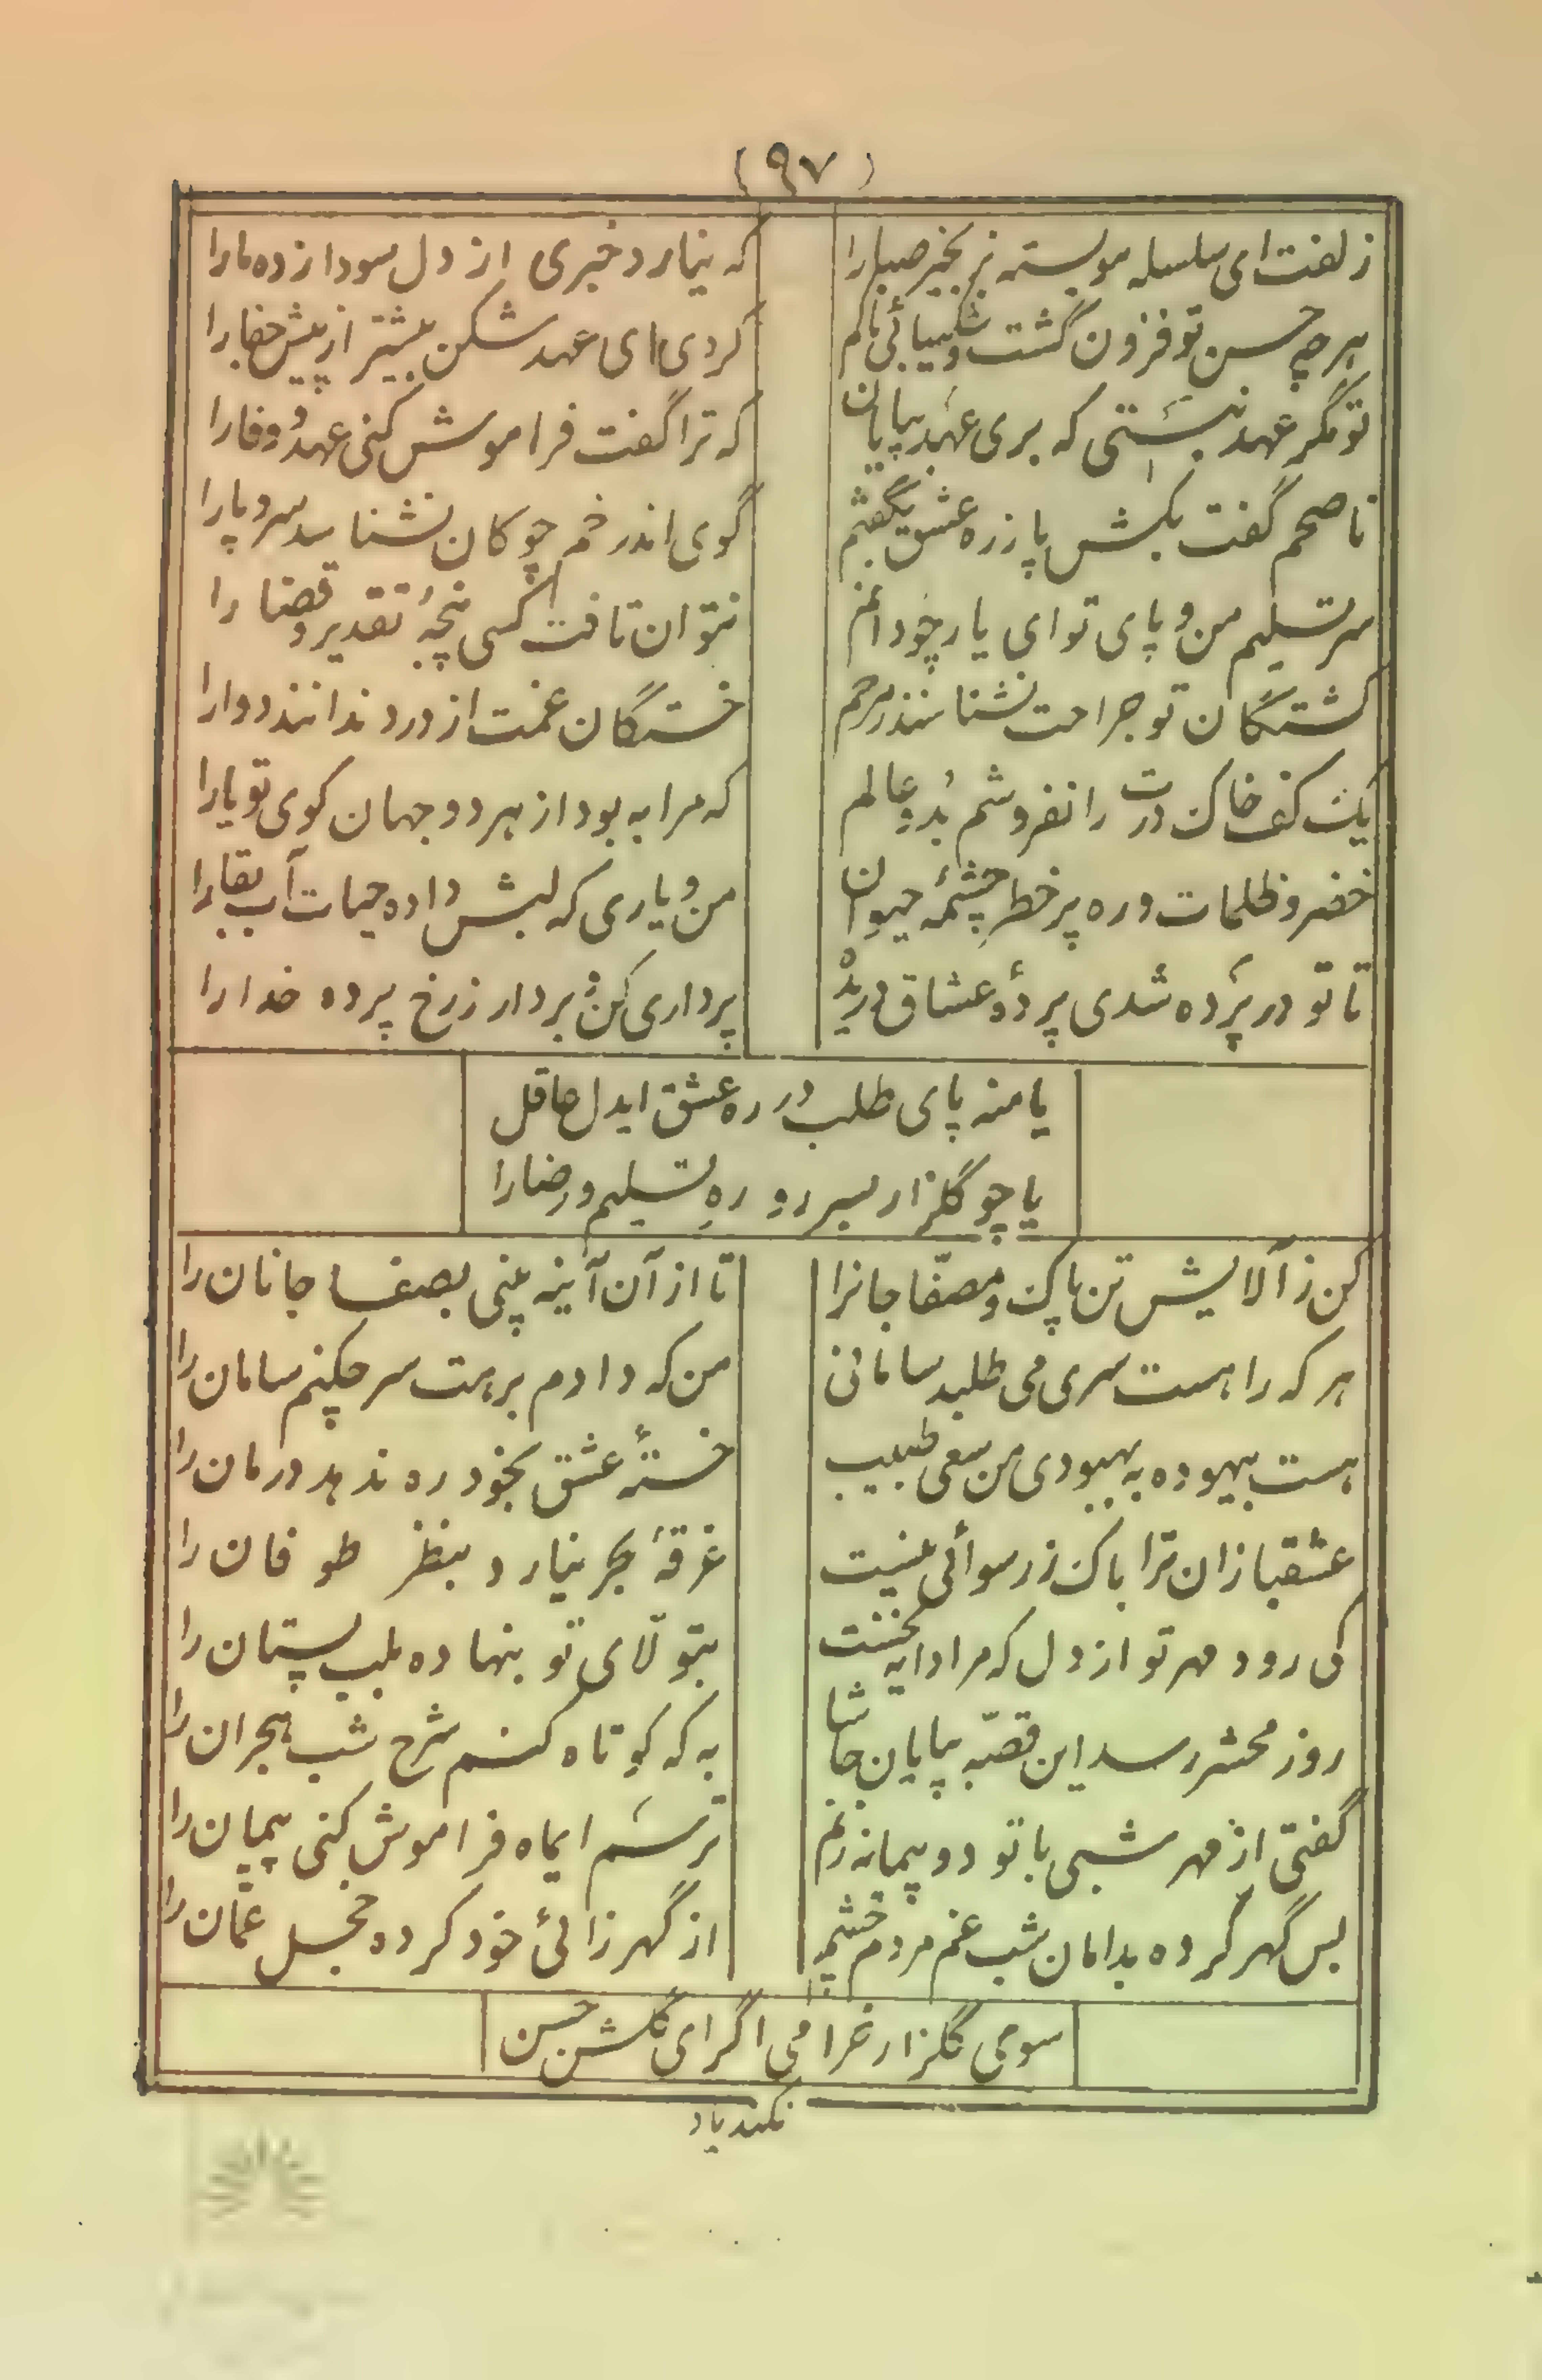 (۹۷)
زلفت ای سلسله مو بسته بزنجیر صبا را
که نیارد خبری از دل سودا زده ما را
هر چه حسن تو فزون گشت و شکیبائی ما کم
کردی ای عهد شکن بیشتر از پیش جفا را
تو مگر عهد نبستی که بری عهد بپایان
که ترا گفت فراموش کنی عهد و وفا را
ناصحم گفت بکش پا ز ره عشق بگفتم
گوی اندر خم چوکان نشناسد سر و پا را
سر تسلیم من و پای تو ای یار چو دانم
نتوان تافت کسی پنجهٔ تقدیر و قضا را
کشتگان تو جراحت نشناسند ز مرهم
خستگان غمت از درد ندانند دوا را
یک کف خاک درت را نفروشم بدو عالم
که مرا به بود از هر دو جهان کوی تو یارا
خضر و ظلمات و ره پر خطر چشمهٔ حیوان
من و یاری که لبش داده حیات آب بقا را
تا تو در پرده شدی پردهٔ عشاق دریدْ
پرداری کن و بردار ز رخ پرده خدا را
یا منه پای طلب در ره عشق ایدل عاقل
یا چو گلزار بسر رو رهِ تسلیم و رضا را
کن ز آلایش تن پاک و مصفّا جانرا
تا از آن آینه بینی بصفا جانان را
هر که را هست سری می طلبد سامانی
من که دادم برهت سر چکنم سامان را
هست بیهوده به بهبودی من سعی طبیب
خستهٔ عشق بخود ره ندهد درمان را
عشقبازان ترا باک ز رسوائی نیست
غرقهٔ بحر نیارد بنظر طوفان را
کی رود مهر تو از دل که مرا دایه نخست
بتولّای تو بنهاده بلب پستان را
روز محشر رسد این قصّه بپایان حاشا
به که کوتاه کنم شرح شب هجران را
گفتی از مهر شبی با تو دو پیمانه زنم
ترسم ایماه فراموش کنی پیمان را
بس گهر کرده بدامان شب غم مردم چشم
از گهر زائی خود کرده خجل عمّان را
سوی گلزار خرامی اگر ای گلشن حسن
نکند یاد